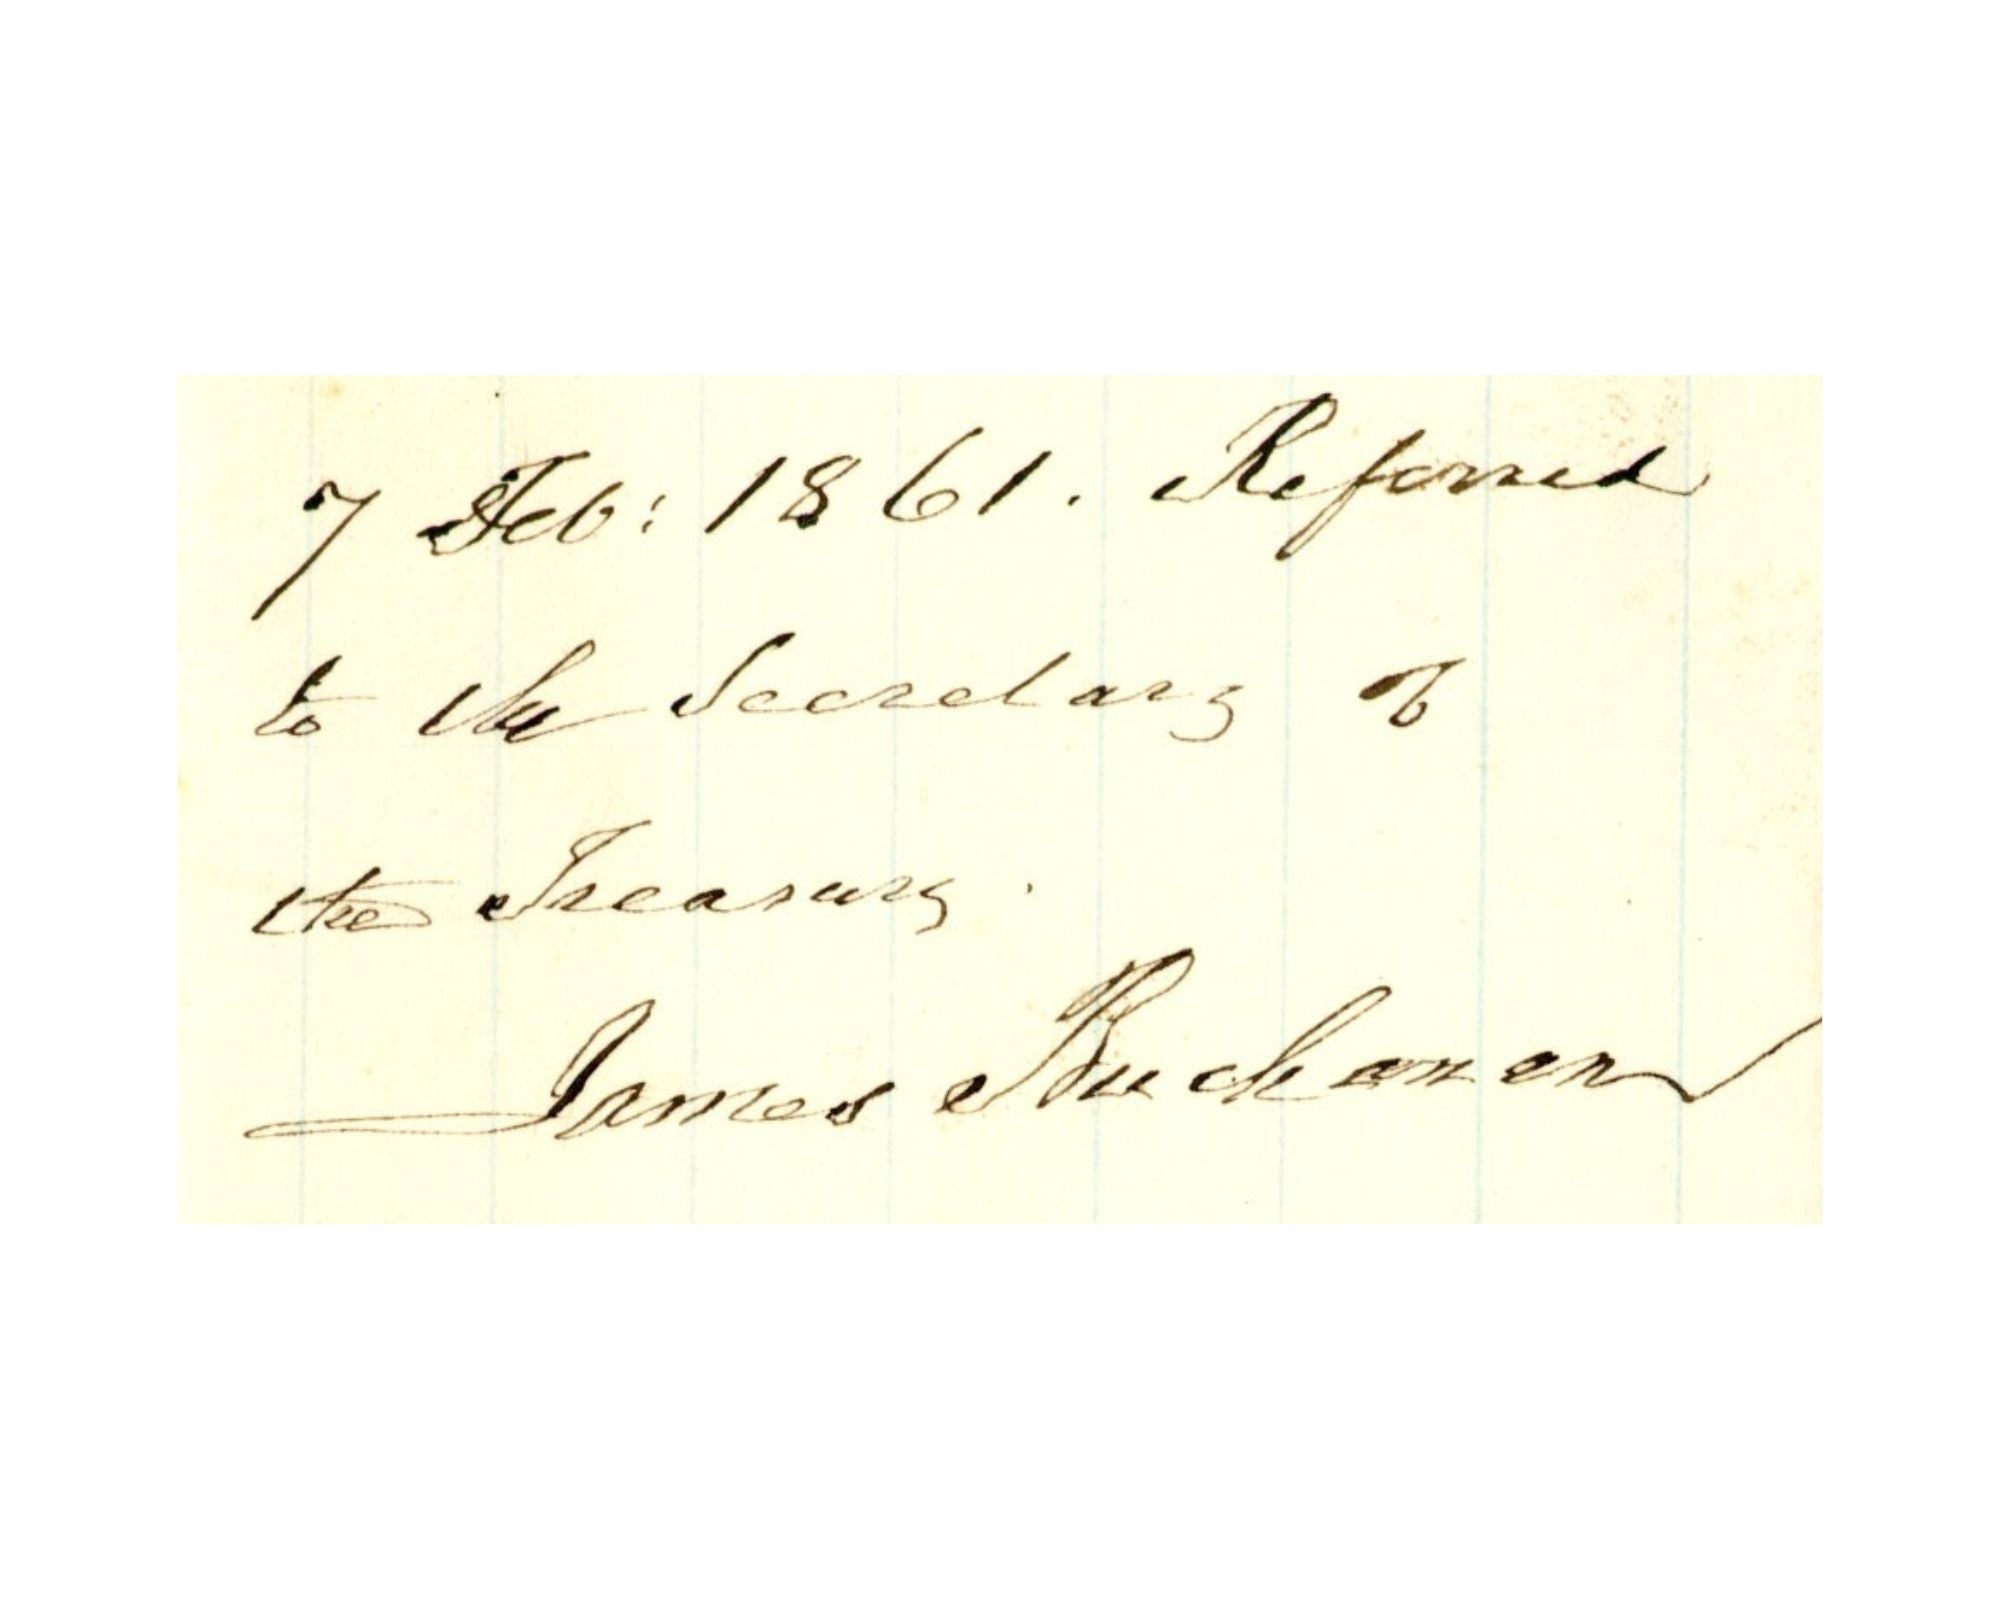 7 Feb: 1861. Referred
to the Secretary of
the Treasury.
James Buchanan